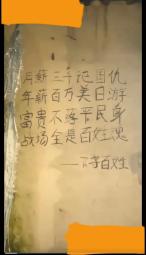 月薪三千记国仇
年薪百万美日游
富贵不落平民身
战场全是百姓魂
——下等百姓